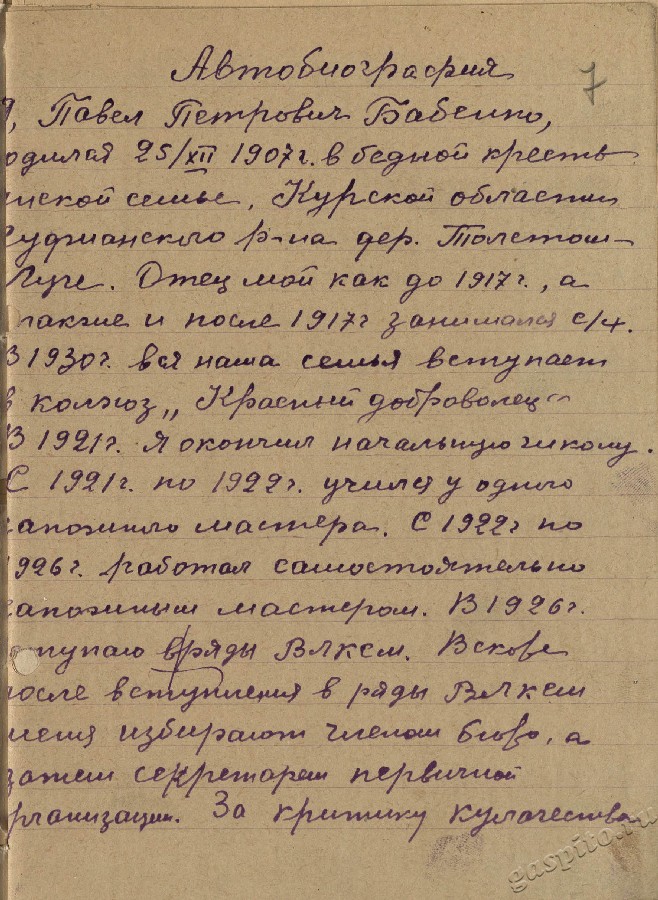 Автобиография
7
Я, Павел Петрович Бабенко,
одился 25/XII 1907г. в бедной кресть
нской семье, Курской области
уджанского р-на дер. Толстом
Луге. Отец мой как до 1917г., а
также и после 1917г занимался с/х.
В 1930г. вся наша семья вступает
в колхоз „Красный доброволец"
В 1921г. я окончил начальную школу.
С 1921г. по 1922г. учился у одного
сапожного мастера. С 1922г по
1926г. работал самостоятельно
сапожным мастером. В 1926г.
ступаю в ряды ВЛКСМ. Вскоре
после вступления в ряды ВЛКСМ
меня избирают членом бюро, а
затем секретарем первичной
организации. За критику кулачества
gaspito.ru